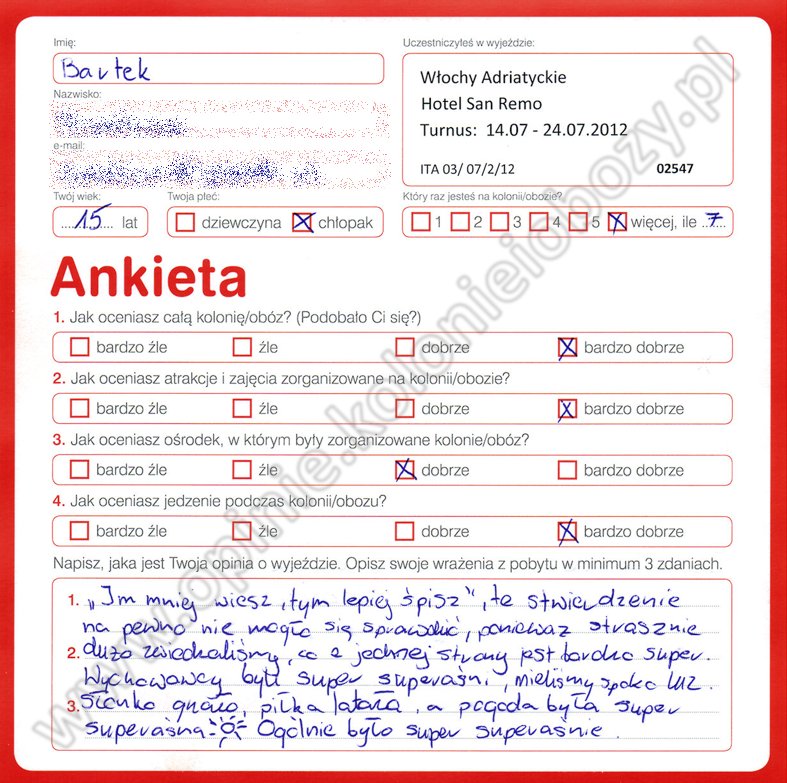 Imię:
Bartek
Nazwisko:
e-mail:
Twój wiek:
15 lat
Twoja płeć:
dziewczyna chłopak
Uczestniczyłeś w wyjeździe:
Włochy Adriatyckie
Hotel San Remo
Turnus: 14.07 - 24.07.2012
ITA 03/ 07/2/12 02547
Który raz jesteś na kolonii/obozie?
1 2 3 4 5 więcej, ile 7
Ankieta
1. Jak oceniasz całą kolonię/obóz? (Podobało Ci się?)
bardzo źle źle dobrze bardzo dobrze
2. Jak oceniasz atrakcje i zajęcia zorganizowane na kolonii/obozie?
bardzo źle źle dobrze bardzo dobrze
3. Jak oceniasz ośrodek, w którym były zorganizowane kolonie/obóz?
bardzo źle źle dobrze bardzo dobrze
4. Jak oceniasz jedzenie podczas kolonii/obozu?
bardzo źle źle dobrze bardzo dobrze
Napisz, jaka jest Twoja opinia o wyjeździe. Opisz swoje wrażenia z pobytu w minimum 3 zdaniach.
1. „Im mniej wiesz, tym lepiej śpisz", te stwierdzenie
na pewno nie mogło się sprawdzić, ponieważ strasznie
2. dużo zwiedzaliśmy, co z jednej strony jest bardzo super.
Wychowawcy byli super superaśni, mieliśmy spoko luz.
3. Słonko grzało, piłka latała, a pogoda była super
superaśna Ogólnie było super superaśnie.
www.opinie.kolonieiobozy.pl